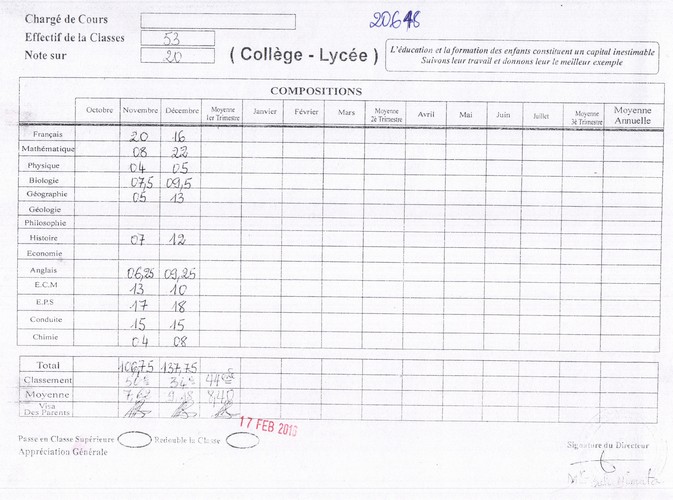 Chargé de Cours 20648
Effectif de la Classes 53
Note sur 20
( Collège - Lycée )
L'éducation et la formation des enfants constituent un capital inestimable
Suivons leur travail et donnons leur le meilleur exemple
COMPOSITIONS
Octobre Novembre Décembre Moyenne 1er Trimestre Janvier Février Mars Moyenne 2è Trimestre Avril Mai Juin Juillet Moyenne 3è Trimestre Moyenne Annuelle
Français 20 16
Mathématique 08 22
Physique 04 05
Biologie 07,5 09,5
Géographie 05 13
Géologie
Philosophie
Histoire 07 12
Economie
Anglais 06,25 09,25
E.C.M 13 10
E.P.S 17 18
Conduite 15 15
Chimie 04 08
Total 106,75 137,75
Classement 34è 44è
Moyenne 9,18 8,40
Visa
Des Parents
17 FEB 2013
Passe en Classe Supérieure Redouble la Classe
Appréciation Générale
Signature du Directeur